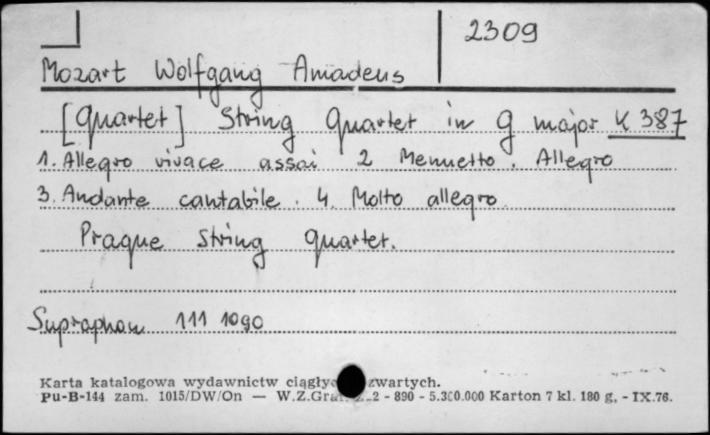 2309
Mozart Wolfgang Amadeus
[Quartet] String Quartet in G major K 387
1. Allegro vivace assai 2 Menuetto. Allegro
3. Andante cantabile. 4. Molto allegro
Prague String Quartet.
Supraphon 111 1090
Karta katalogowa wydawnictw zwartych.
Pu-B-144 zam. 1015/DW/On — W.Z.Graf. 2 - 890 - 5.300.000 Karton 7 kl. 180 g. - IX.76.